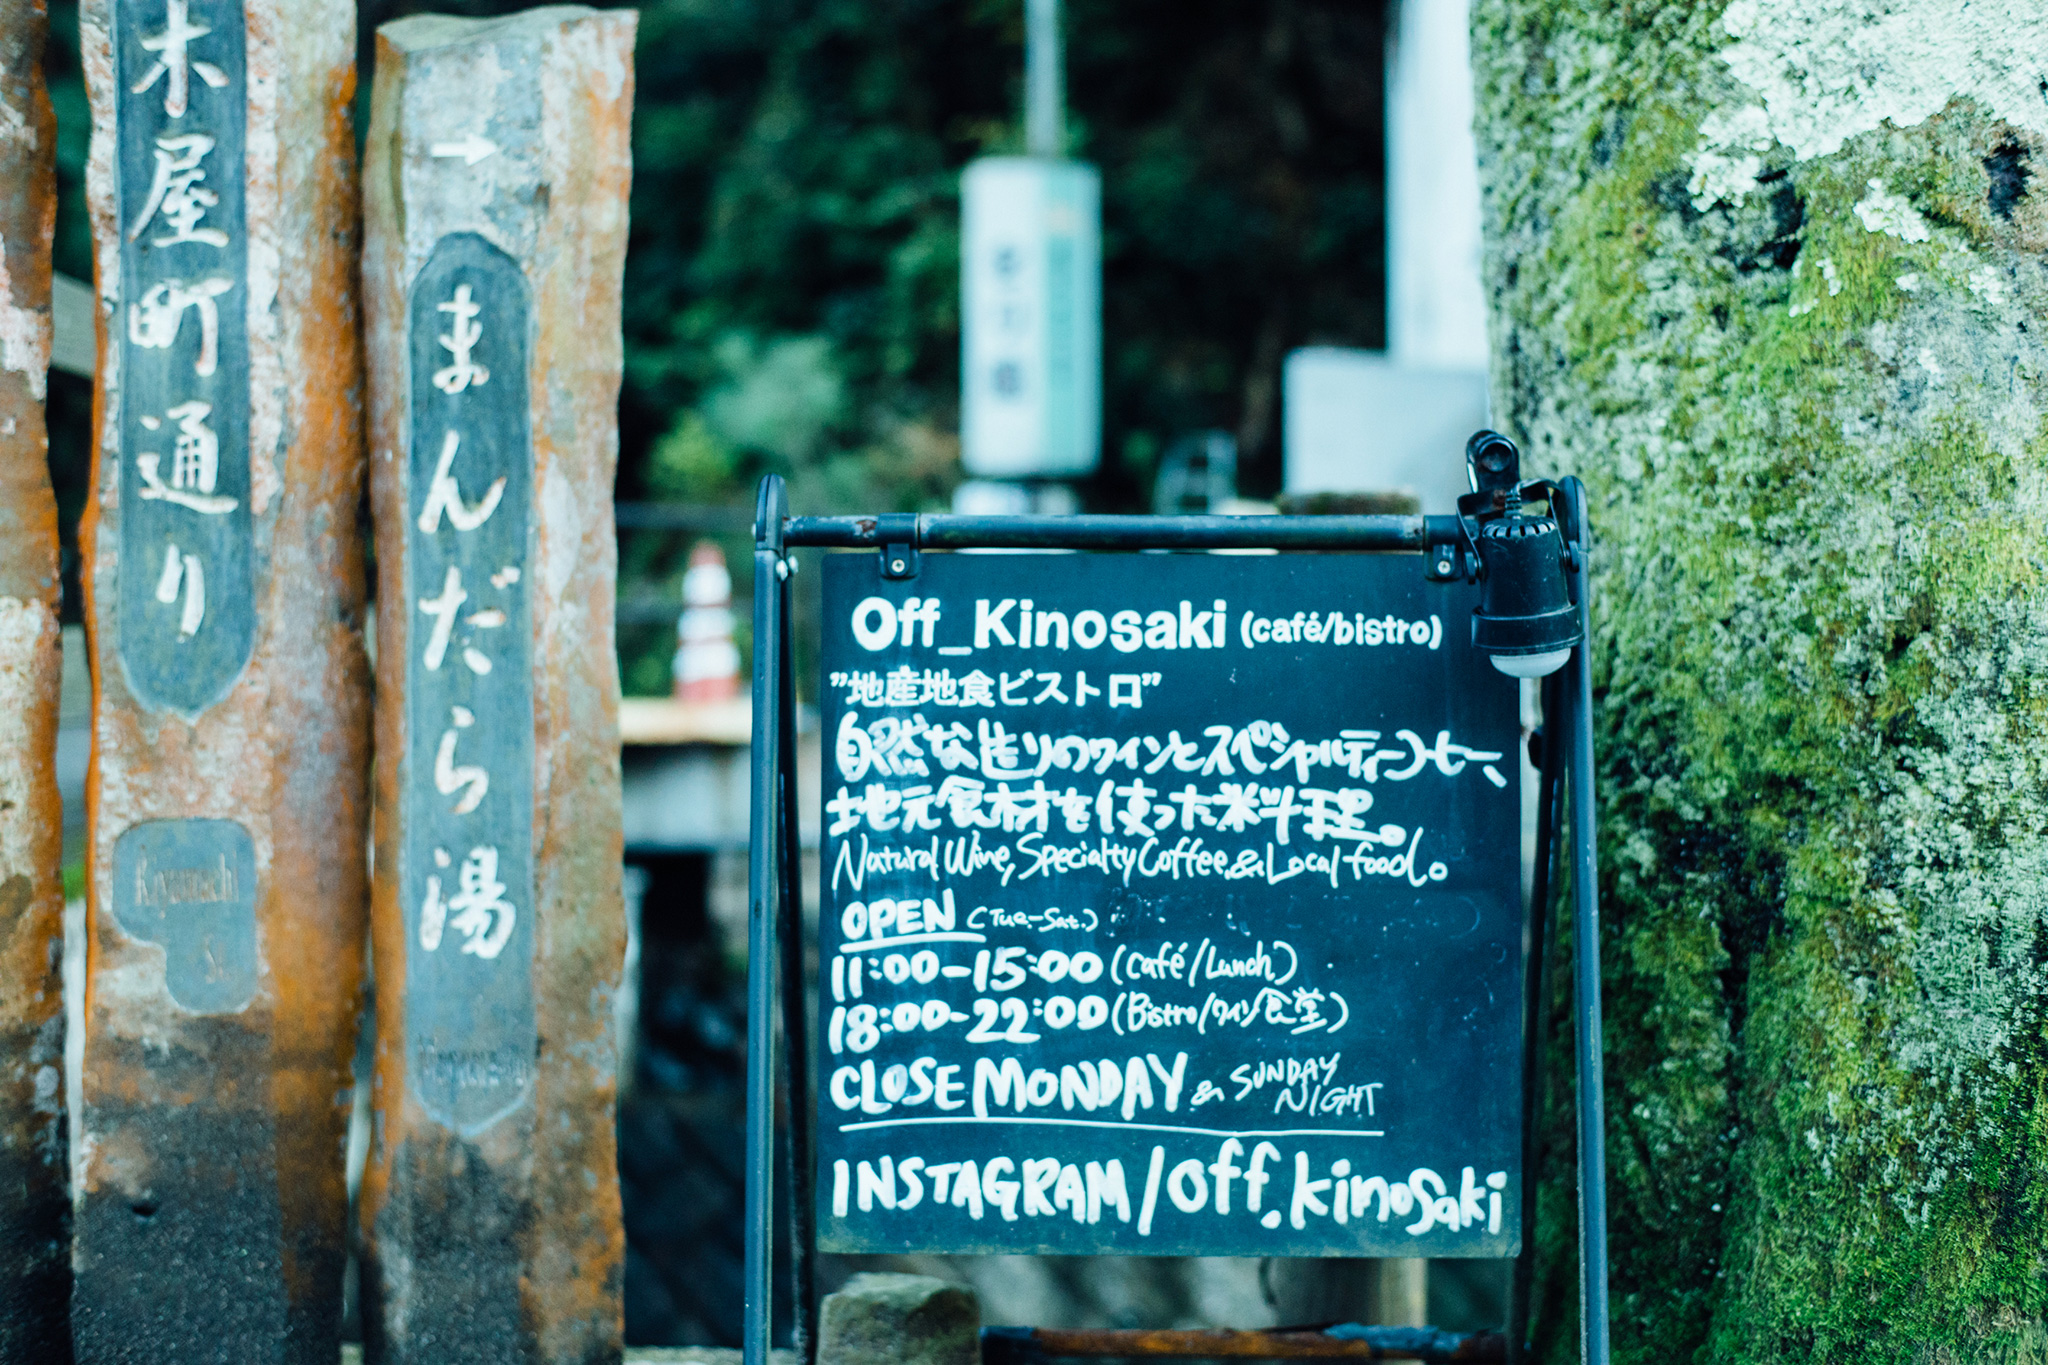 木屋町通り
→
まんだら湯
Off_Kinosaki (café/bistro)
”地産地食ビストロ”
自然な造りのワインとスペシャルティコーヒー、
地元食材を使った料理。
Natural Wine, Specialty Coffee & Local food。
OPEN (Tue.-Sat.)
11:00-15:00 (Café/Lunch)
18:00-22:00 (Bistro/ワイン食堂)
CLOSE MONDAY & SUNDAY NIGHT
INSTAGRAM/off.kinosaki